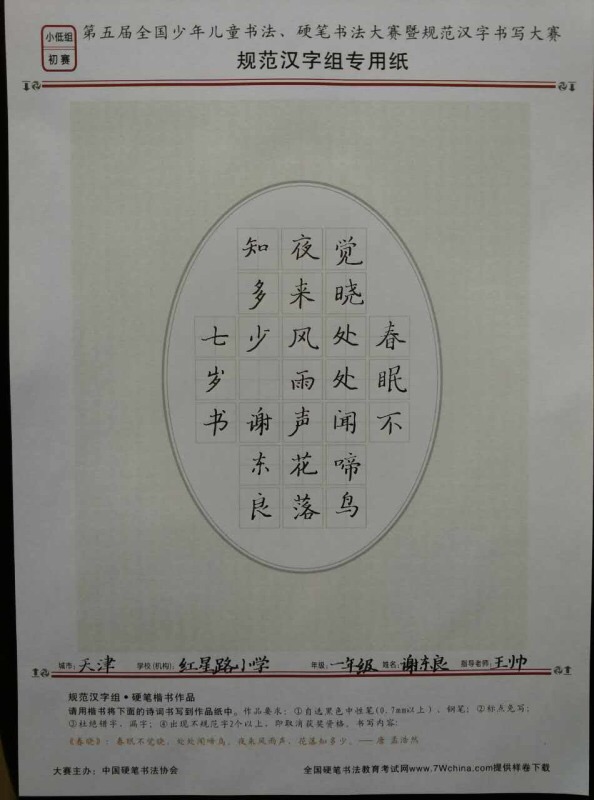 小低组
初赛
第五届全国少年儿童书法、硬笔书法大赛暨规范汉字书写大赛
规范汉字组专用纸
春眠不
觉晓处处闻啼鸟
夜来风雨声花落
知多少 谢东良
七岁书
城市：天津 学校(机构)：红星路小学 年级：一年级 姓名：谢东良 指导老师：王帅
规范汉字组·硬笔楷书作品
请用楷书将下面的诗词书写到作品纸中。作品要求：①自选黑色中性笔(0.7mm以上)、钢笔；②标点免写；
③杜绝错字、漏字；④出现不规范字2个以上，即取消获奖资格。书写内容：
《春晓》：春眠不觉晓，处处闻啼鸟，夜来风雨声，花落知多少。——唐 孟浩然
大赛主办：中国硬笔书法协会 全国硬笔书法教育考试网www.7Wchina.com提供样卷下载